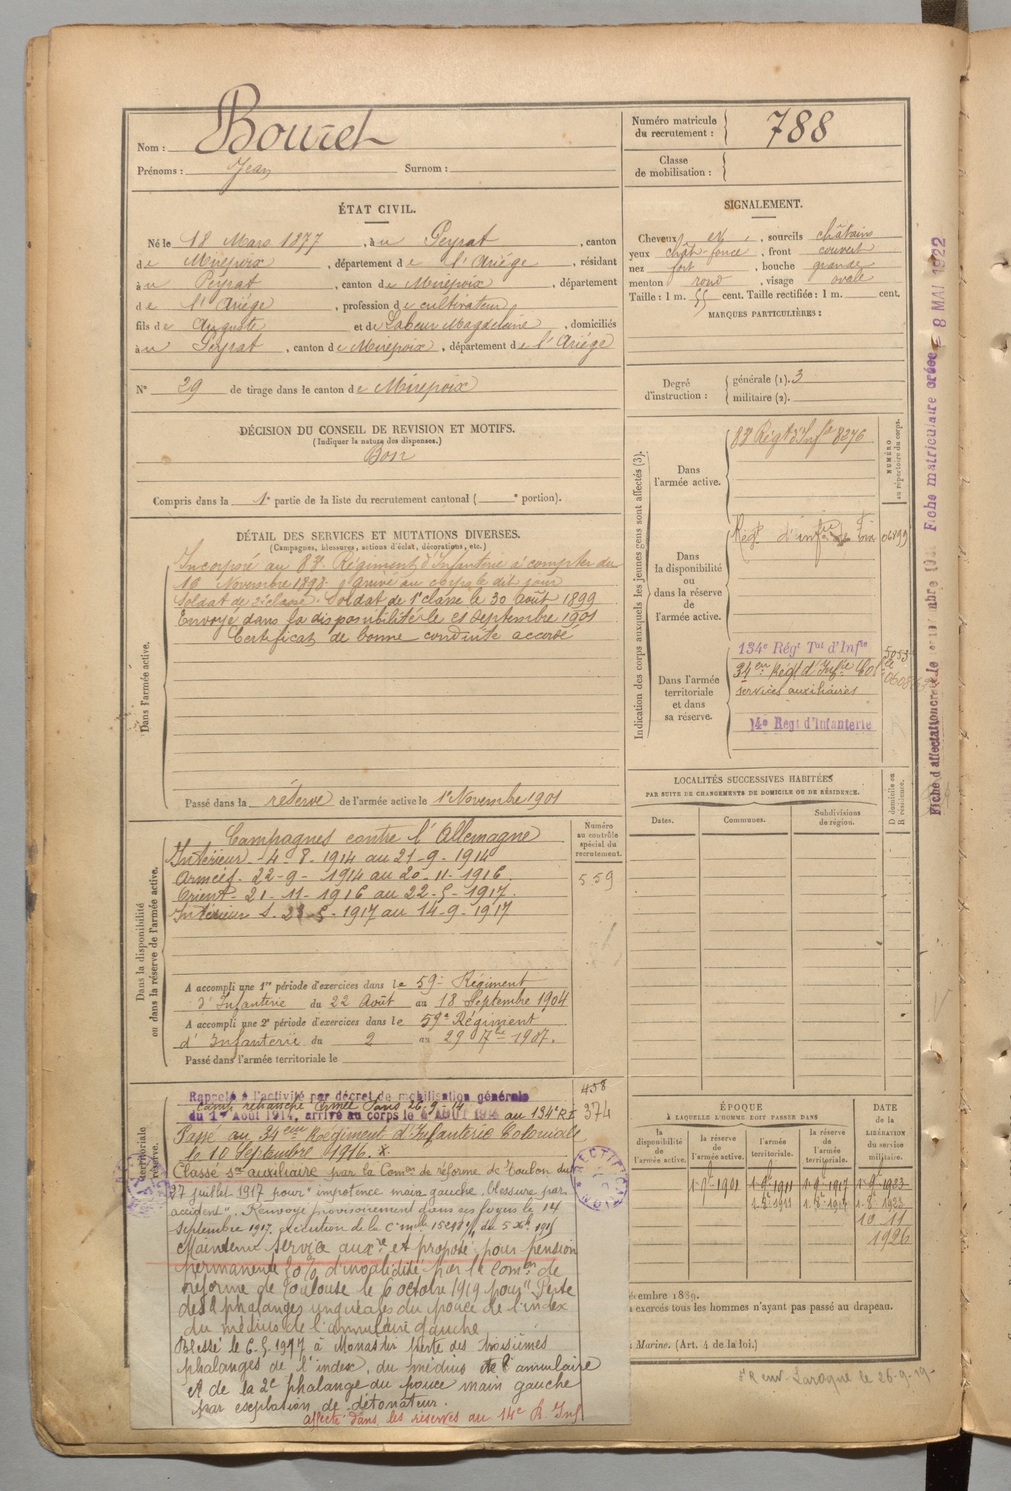 Nom : Bouret
Prénoms : Jean Surnom :
Numéro matricule du recrutement : 788
Classe de mobilisation :
ÉTAT CIVIL.
Né le 18 Mars 1877, à Peyrat, canton
de Mirepoix, département de l'Ariège, résidant
à Peyrat, canton de Mirepoix, département
de l'Ariège, profession de cultivateur
fils de Auguste et de Labeur Magdelaine, domiciliés
à Peyrat, canton de Mirepoix, département de l'Ariège
N° 29 de tirage dans le canton de Mirepoix
DÉCISION DU CONSEIL DE REVISION ET MOTIFS.
(Indiquer la nature des dispenses.)
Bon
Compris dans la 1e partie de la liste du recrutement cantonal ( e portion).
SIGNALEMENT.
Cheveux et, sourcils châtains
yeux chât. foncé, front couvert
nez fort, bouche grande
menton rond, visage ovale
Taille : 1 m. 55 cent. Taille rectifiée : 1 m. cent.
MARQUES PARTICULIÈRES :
Degré d'instruction : générale (1). 3
militaire (2).
DÉTAIL DES SERVICES ET MUTATIONS DIVERSES.
(Campagnes, blessures, actions d'éclat, décorations, etc.)
Dans l'armée active.
Incorporé au 83e Régiment d'Infanterie à compter du
16 Novembre 1898. Arrivé au corps le dit jour
Soldat de 2e classe. Soldat de 1e classe le 30 Août 1899
Envoyé dans la disponibilité le 21 Septembre 1901
Certificat de bonne conduite accordé
Passé dans la réserve de l'armée active le 1e Novembre 1901
Dans la disponibilité ou dans la réserve de l'armée active.
Campagnes contre l'Allemagne
Intérieur - 4-8-1914 au 21-9-1914
Armées - 22-9-1914 au 20-11-1916
Orient - 21-11-1916 au 22-5-1917
Intérieur - 23-5-1917 au 14-9-1917
Numéro au contrôle spécial du recrutement.
559
A accompli une 1re période d'exercices dans le 59e Régiment
d'Infanterie du 22 Août au 18 Septembre 1904
A accompli une 2e période d'exercices dans le 59e Régiment
d'Infanterie du 2 au 29 7bre 1907.
Passé dans l'armée territoriale le
438
374
Rappelé à l'activité par décret de mobilisation générale
camp retranché Armée Paris 26-9-14
du 1er Août 1914, arrivé au corps le 4 AOUT 1914 au 134e RI
Passé au 34eme Régiment d'Infanterie Coloniale
le 10 Septembre 1916. x.
Classé sce auxiliaire par la Comon de réforme de Toulon du
27 juillet 1917 pour "impotence main gauche, blessure par
accident". Renvoyé provisoirement dans ses foyers le 14
Septembre 1917, exécution de la
Maintenu service auxre et proposé pour pension
permanente 30% d'invalidité par la Comon de
réforme de Toulouse le 6 octobre 1919 pour "Perte
des 2 phalanges unguéales du pouce de l'index
du médius de l'annulaire gauche
Blessé le 6.5.1917 à Monastir perte des troisièmes
phalanges de l'index, du médius et de l'annulaire
et de la 2e phalange du pouce main gauche
par explosion de détonateur.
affecté dans les réserves au 14e R. Inf
territoriale
réserve.
RECTIFICATION
Indication des corps auxquels les jeunes gens sont affectés (3).
Dans l'armée active.
83e Régt d'Infie 8376
NUMÉRO au répertoire du corps.
Dans la disponibilité ou dans la réserve de l'armée active.
Régt d'Infie de
Dans l'armée territoriale et dans sa réserve.
134e Régt Tal d'Infie
34eme Régt d'Infie Cole
services auxiliaires
14e Régt d'Infanterie
LOCALITÉS SUCCESSIVES HABITÉES
PAR SUITE DE CHANGEMENTS DE DOMICILE OU DE RÉSIDENCE.
Dates. Communes. Subdivisions de région.
D domicile ou R résidence.
ÉPOQUE
À LAQUELLE L'HOMME DOIT PASSER DANS
la disponibilité de l'armée active. la réserve de l'armée active. l'armée territoriale. la réserve de l'armée territoriale.
DATE de la LIBÉRATION du service militaire.
1-9bre 1901 1-9bre 1911 1-9bre 1917 1-9bre 1923
1-8bre 1911 1-8bre 1917 1-8bre 1923
10 11
1926
écembre 1889.
à exercés tous les hommes n'ayant pas passé au drapeau.
Marine. (Art. 4 de la loi.)
Laroque le 26-9-19-
Fiche matriculaire créée le 8 MAI 1922
Fiche d'affectation créée le